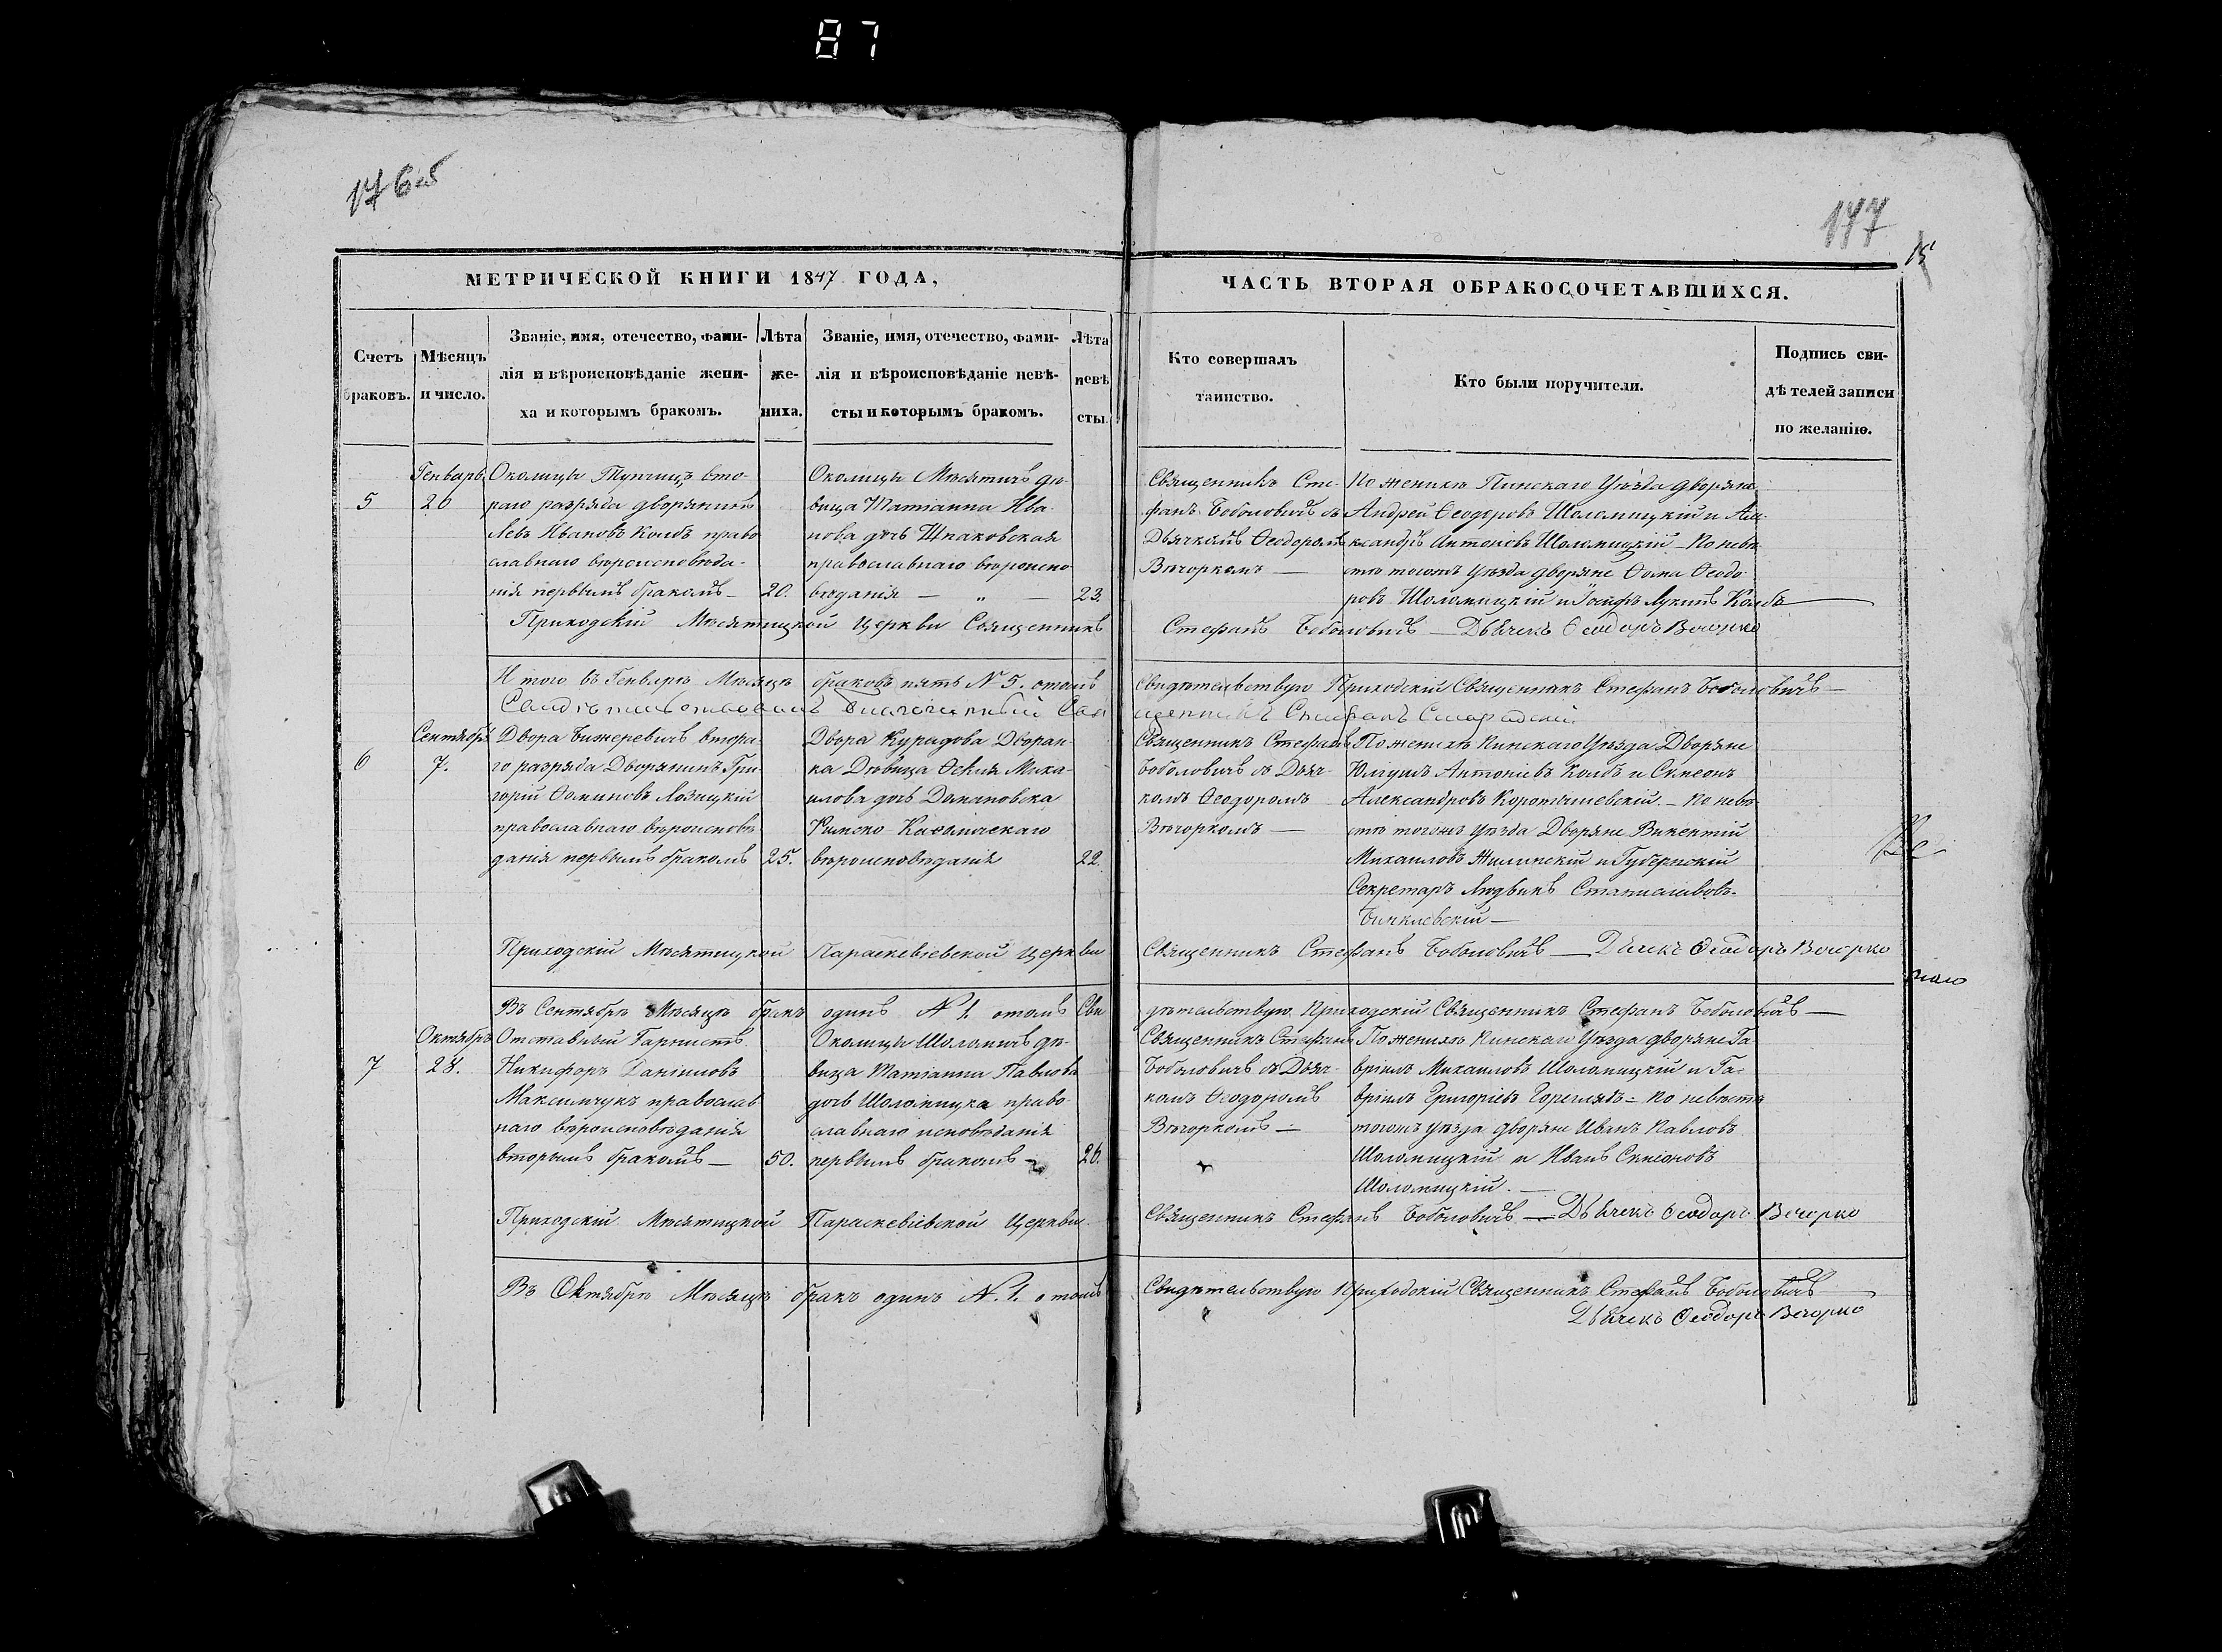 87
176об
177
15
МЕТРИЧЕСКОЙ КНИГИ 1847 ГОДА,
ЧАСТЬ ВТОРАЯ ОБРАКОСОЧЕТАВШИХСЯ.
Счетъ браковъ.
Мѣсяцъ и число.
Званіе, имя, отечество, фами-
лія и вѣроисповѣданіе жени-
ха и которымъ бракомъ.
Лѣта
же-
ниха.
Званіе, имя, отечество, фами-
лія и вѣроисповѣданіе невѣ-
сты и которымъ бракомъ.
Лѣта
невѣ
сты.
Кто совершалъ
таинство.
Кто были поручители.
Подпись сви-
дѣтелей записи
по желанію.
5
Генварь
20
Околицы Тупчицъ вто-
раго разряда дворянинъ
Левъ Ивановъ Колбъ право
славнаго вѣроисповѣда-
нія первымъ бракомъ —
20.
Околицы Мѣсятичъ дѣ-
вица Татіанна Ива-
нова дочь Шпаковская
православнаго вѣроиспо
вѣданія — „ —
23.
Священникъ Сте-
фанъ Боболовичъ съ
Дьячкомъ Ѳеодоромъ
Вѣчоркомъ —
По женихѣ Пинскаго Уѣзда дворяне
Андрей Ѳеодоровъ Шоломицкій и Але-
ксандръ Антоновъ Шоломицкій — По невѣ-
стѣ тогожъ Уѣзда дворяне Ѳома Ѳеодо-
ровъ Шоломицкій и Іосифъ Лукинъ Колбъ —
Приходскій Мѣсятицкой Церкви Священникъ Стефанъ Боболовичъ — Дьячекъ Ѳеодоръ Вечорко
Итого въ Генварѣ Мѣсяцѣ браковъ пять N 5. отомъ свидѣтельствую Приходскій Священникъ Стефанъ Боболовичъ —
6
Сентябрь
7.
Двора Бижеревичъ втора-
го разряда Дворянинъ Гри-
горій Ѳоминовъ Лозицкій
православнаго вѣроисповѣ
данія первымъ бракомъ
25.
Двора Курадова Дворян-
ка Дѣвица Ѳекля Миха-
илова дочь
Римско Каѳолическаго
вѣроисповѣданія
22.
Священникъ Стефанъ
Боболовичъ съ Дьяч-
комъ Ѳеодоромъ
Вѣчоркомъ —
По женихѣ Пинскаго Уѣзда Дворяне
Антоніевъ Колбъ и Симеонъ
Александровъ Коротышевскій. — По невѣ-
стѣ тогожъ Уѣзда Дворяне Викентій
Михаиловъ Жилинскій и Губернскій
Секретарь Людвикъ Станиславовъ
—
Приходскій Мѣсятицкой Параскевіевской Церкви Священникъ Стефанъ Боболовичъ — Дьячекъ Ѳеодоръ Вечорко
Въ Сентябрѣ Мѣсяцѣ бракъ одинъ N 1. отомъ Сви дѣтельствую Приходскій Священникъ Стефанъ Боболовичъ —
7
Октябрь
28.
Отставный Гарнистъ
Никифоръ Даніиловъ
Максимчукъ православ-
наго вѣроисповѣданія
вторымъ бракомъ —
50.
Околицы Шоломичъ дѣ-
вица Татіанна Павлова
дочь Шоломицка право-
славнаго исповѣданія
первымъ бракомъ —
26.
Священникъ Стефанъ
Боболовичъ съ Дьяч-
комъ Ѳеодоромъ
Вѣчоркомъ —
По женихѣ Пинскаго Уѣзда дворяне Га-
вріилъ Михаиловъ Шоломицкій и Га-
вріилъ Григоріевъ — По невѣстѣ
тогожъ уѣзда дворяне Иванъ Павловъ
Шоломицкій и Иванъ Симіоновъ
Шоломицкій. —
Приходскій Мѣсятицкой Параскевіевской Церкви Священникъ Стефанъ Боболовичъ — Дьячекъ Ѳеодоръ Вечорко
Въ Октябрѣ Мѣсяцѣ бракъ одинъ N. 1. отомъ Свидѣтельствую Приходскій Священникъ Стефанъ Боболовичъ
Дьячекъ Ѳеодоръ Вечорко